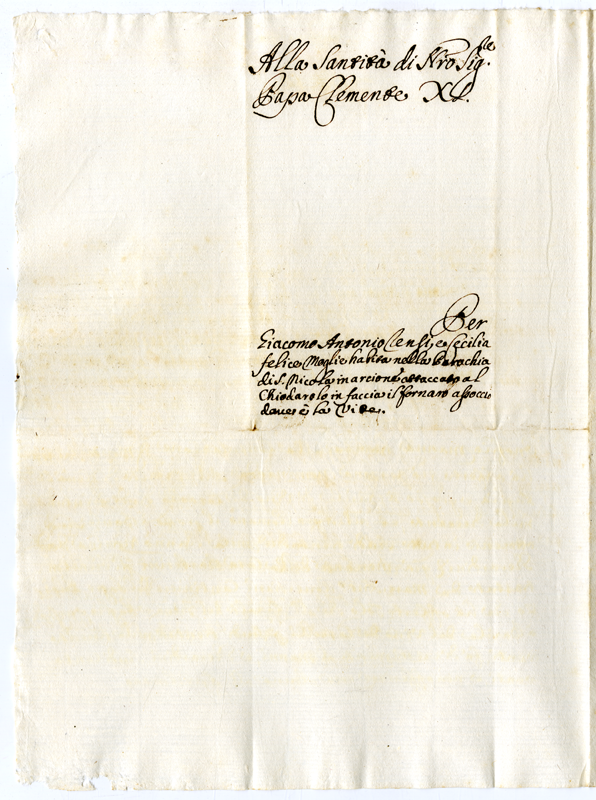 Alla Santità di Nro Sig.re
Papa Clemente XI.
Per
Giacomo Antonio Censi, e Cecilia
felice Moglie habita nella Parochia
di S. Nicola in arcione attaccato al
Chiodarolo in faccia il fornaro a
dove è la Vite.